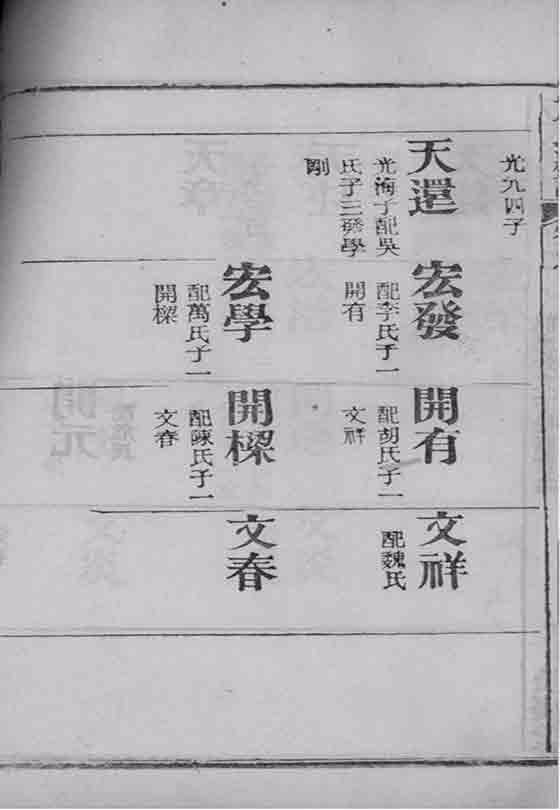 光九四子
天還
光海子配吳
氏子三發學
剛
宏發
配李氏子一
開有
宏學
配萬氏子一
開樑
開有
配胡氏子一
文祥
開樑
配陳氏子一
文春
文祥
配魏氏
文春